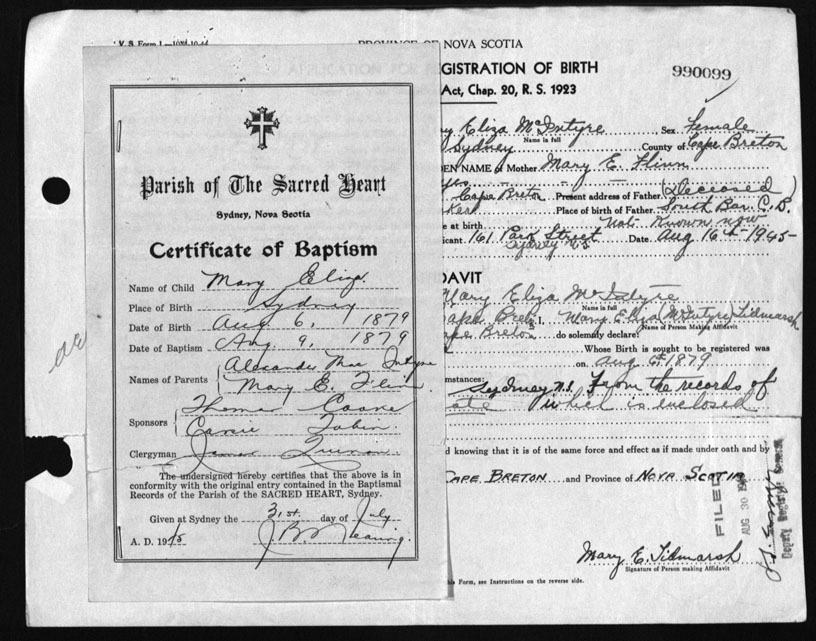 V. S. Form 1
PROVINCE OF NOVA SCOTIA
GISTRATION OF BIRTH
Act, Chap. 20, R. S. 1923
990099
Parish of The Sacred Heart
Sydney, Nova Scotia
Certificate of Baptism
Name of Child Mary Eliza
Place of Birth Sydney
Date of Birth Aug 6, 1879
Date of Baptism Aug 9, 1879
Names of Parents Alexander Mac Intyre
Mary E. Flinn
Sponsors Thomas Cooke
Tobin
Clergyman James Quinan
The undersigned hereby certifies that the above is in
conformity with the original entry contained in the Baptismal
Records of the Parish of the SACRED HEART, Sydney.
Given at Sydney the 31st. day of July
A. D. 19
Eliza McIntyre Sex Female
Name in full
Sydney County of Cape Breton
DEN NAME of Mother Mary E. Flinn
Cape Breton Present address of Father (Deceased)
Place of birth of Father South Bar. C. B.
e at birth Not Known now
icant 161 Park Street Date Aug 16th 1945
Sydney N.S.
DAVIT
Mary Eliza McIntyre
Name in full
Cape Bret I, Mary Eliza (McIntyre) Tidmarsh
Name of Person Making Affidavit
Cape Breton do solemnly declare:
Whose Birth is sought to be registered was
on Aug 6th 1879
mstances: Sydney N.S. From the records of
which is enclosed
d knowing that it is of the same force and effect as if made under oath and by
CAPE BRETON and Province of NOVA SCOTIA
FILED
AUG 30 19
Deputy Registrar General
Mary E. Tidmarsh
Signature of Person making Affidavit
his Form, see Instructions on the reverse side.